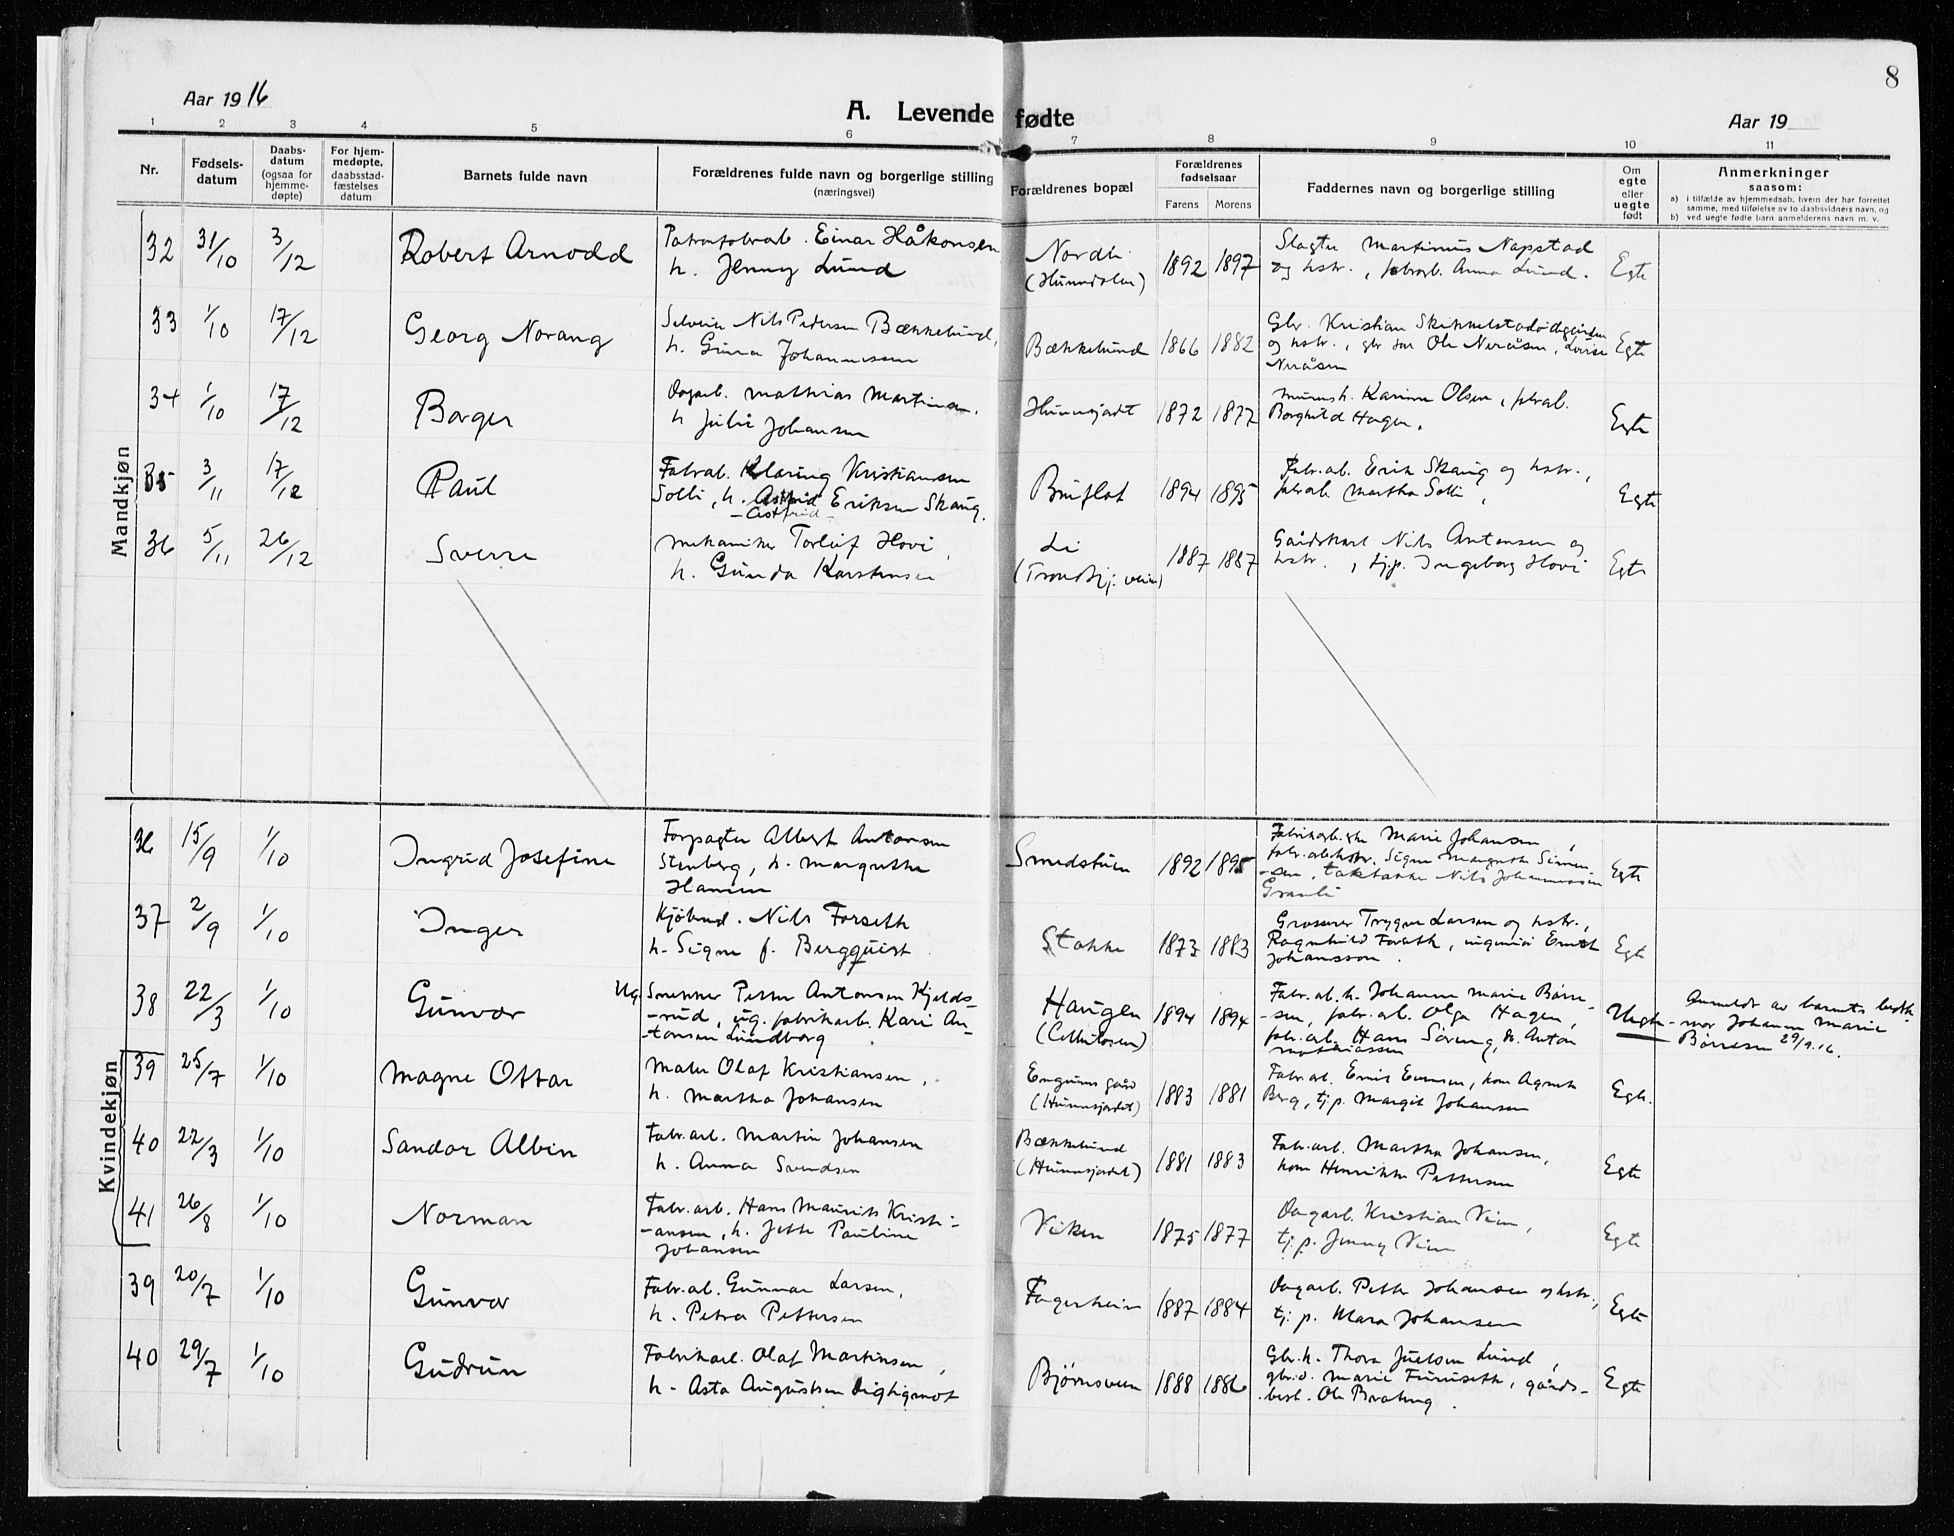 8
Aar 1916
A. Levende fødte
Aar 19
1 2 3 4 5 6 7 8 9 10 11
Nr.
Fødsels-
datum
Daabs-
datum
(ogsaa for
hjemme-
døpte)
For hjem-
medøpte,
daabsstad-
fæstelses
datum
Barnets fulde navn
Forældrenes fulde navn og borgerlige stilling
(næringsvei)
Forældrenes bopæl
Forældrenes
fødselsaar
Farens Morens
Faddernes navn og borgerlige stilling
Om
egte
eller
uegte
født
Anmerkninger
saasom:
a) i tilfælde av hjemmedaab, hvem der har forrettet
samme, med tilføielse av to daabsvidners navn, og
b) ved uegte fødte barn anmelderens navn m. v.
Mandkjøn
32 31/10 3/12 Robert Arnodd
Einar Håkonsen
h. Jenny Lund
Nordli
1892 1897
Slagter Martinus Napstad
og hstr., Anna Lund.
Egte
33 1/10 17/12 Georg Norang
Nils Pedersen Bækkelund,
h. Gina Johannessen
Bækkelund 1866 1882
Gbr. Kristian
og hstr., Ole Neråsen, Lovise
Neråsen
Egte
34 1/10 17/12 Borger
Dagarb. Mathias Martinsen,
h. Julie Johansen
Hunnsjordet 1872 1877
Karinn Olsen,
Borghild Hagen.
Egte
35 3/11 17/12 Paul
Klaring Kristiansen
Solli, h. Astrid Eriksen Skaug.
-Astrid-
Bruflat 1894 1895
Fabr.ab. Erik Skaug og hstr.,
Martha Solli,
Egte
36 5/11 26/12 Sverre
Mekaniker Torleif Hovi,
h. Gunda Karstensen
Li
(Trondhj: veien)
1887 1887
Gårdskarl Nils Antonsen og
hstr., tj.p. Ingeborg Hovi
Egte
Kvindekjøn
36 15/9 1/10 Ingrid Josefine
Forpagter Albert Antonsen
Stenberg, h. Margrethe
Hansen
Smedstuen 1892 1895
Marie Johansen,
Signe Margrethe Simen-
-sen, Nils Johannessen
Egte
37 2/9 1/10 Inger
Kjøbmd. Nils Forseth
h. Signe f. Bergquist
Stakke 1873 1883
Grosserer Trygve Larsen og hstr.,
Ragnhild Forseth, ingeniør Ernst
Johansson.
Egte
38 22/3 1/10 Gunvor
Ug. Snekker Petter Antonsen Kjelds-
-rud, ug. fabrikarb. Kari An-
-tonsen Lundborg
Haugen
(Cellulosen)
1894 1894
Fabr.ab.h. Johanne Marie Børre-
-sen, fabr.ab. Olga Hagen,
fabr.arb. Hans Søreng, do. Anton
Mathiassen
Uegte
Anmeldt av barnets bedste-
mor Johanne Marie
Børresen 29/9.16.
39 25/7 1/10 Magne Ottar
Maler Olaf Kristiansen,
h. Martha Johansen
(Hunnsjordet)
1883 1881
Fabr.ar. Emil Evensen, kone Agnete
Berg, tj.p. Margit Johansen
Egte.
40 22/3 1/10 Sandor Albin
Fabr.arb. Martin Johansen
h. Anna Svendsen
Bækkelund
(Hunnsjordet)
1881 1883
Fabr.arb. Martha Johansen,
kone Henrikke Pettersen
Egte
41 26/8 1/10 Norman
Fabr.arb. Hans Maurits Kristi-
-ansen, h. Jette Pauline
Johansen
Viken 1875 1877
Dagarb. Kristian Vien,
tj.p. Jenny Vien
Egte
39 20/7 1/10 Gunvor
Fabr.ab. Gunnar Larsen,
h. Petra Pettersen
Fagerheim 1887 1884
Dagarb. Petter Johansen og hstr.,
tj.p. Mara Johansen
Egte
40 29/7 1/10 Gudrun
Fabrikarb. Olaf Martinsen,
h. Asta Augustsen Digtigmot
Bjørnsveen 1888 1886
Gbr.h. Thora Juelsen Lund,
gbr.d. Marie Furuseth, gårds-
-best. Ole Bratung.
Egte